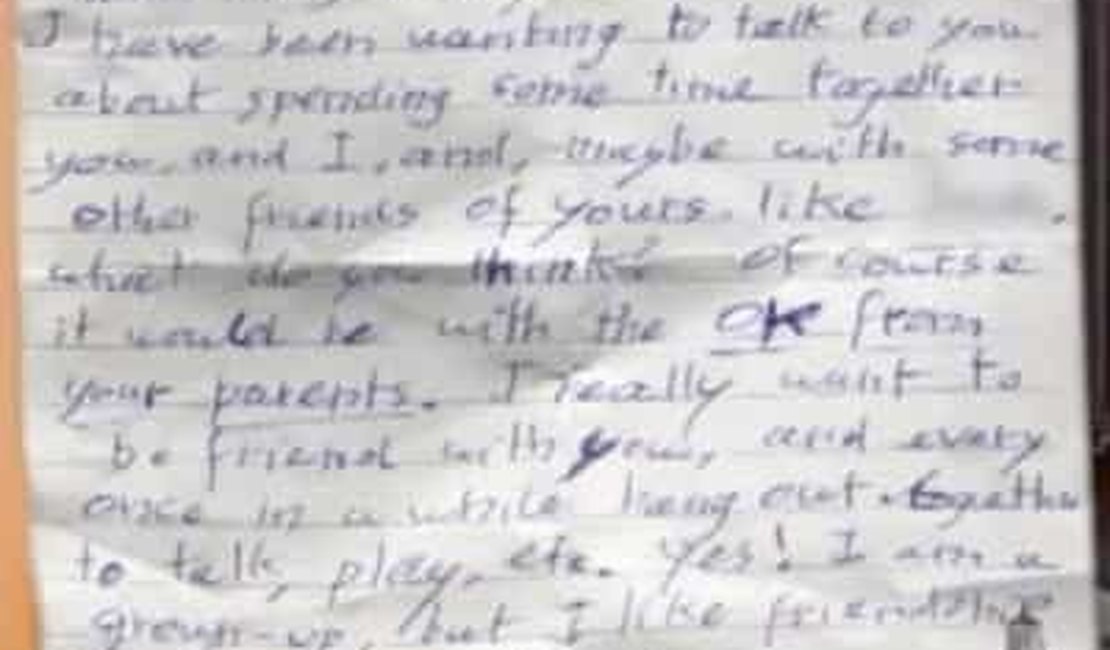 I have been wanting to talk to you
about spending some time together
you, and I, and, maybe with some
other friends of yours. like .
what do you think? of course
it would be with the OK from
your parents. I really want to
be friend with you, and every
once in a while hang out together
to talk, play, etc. Yes! I am a
grown-up, but I like friendship